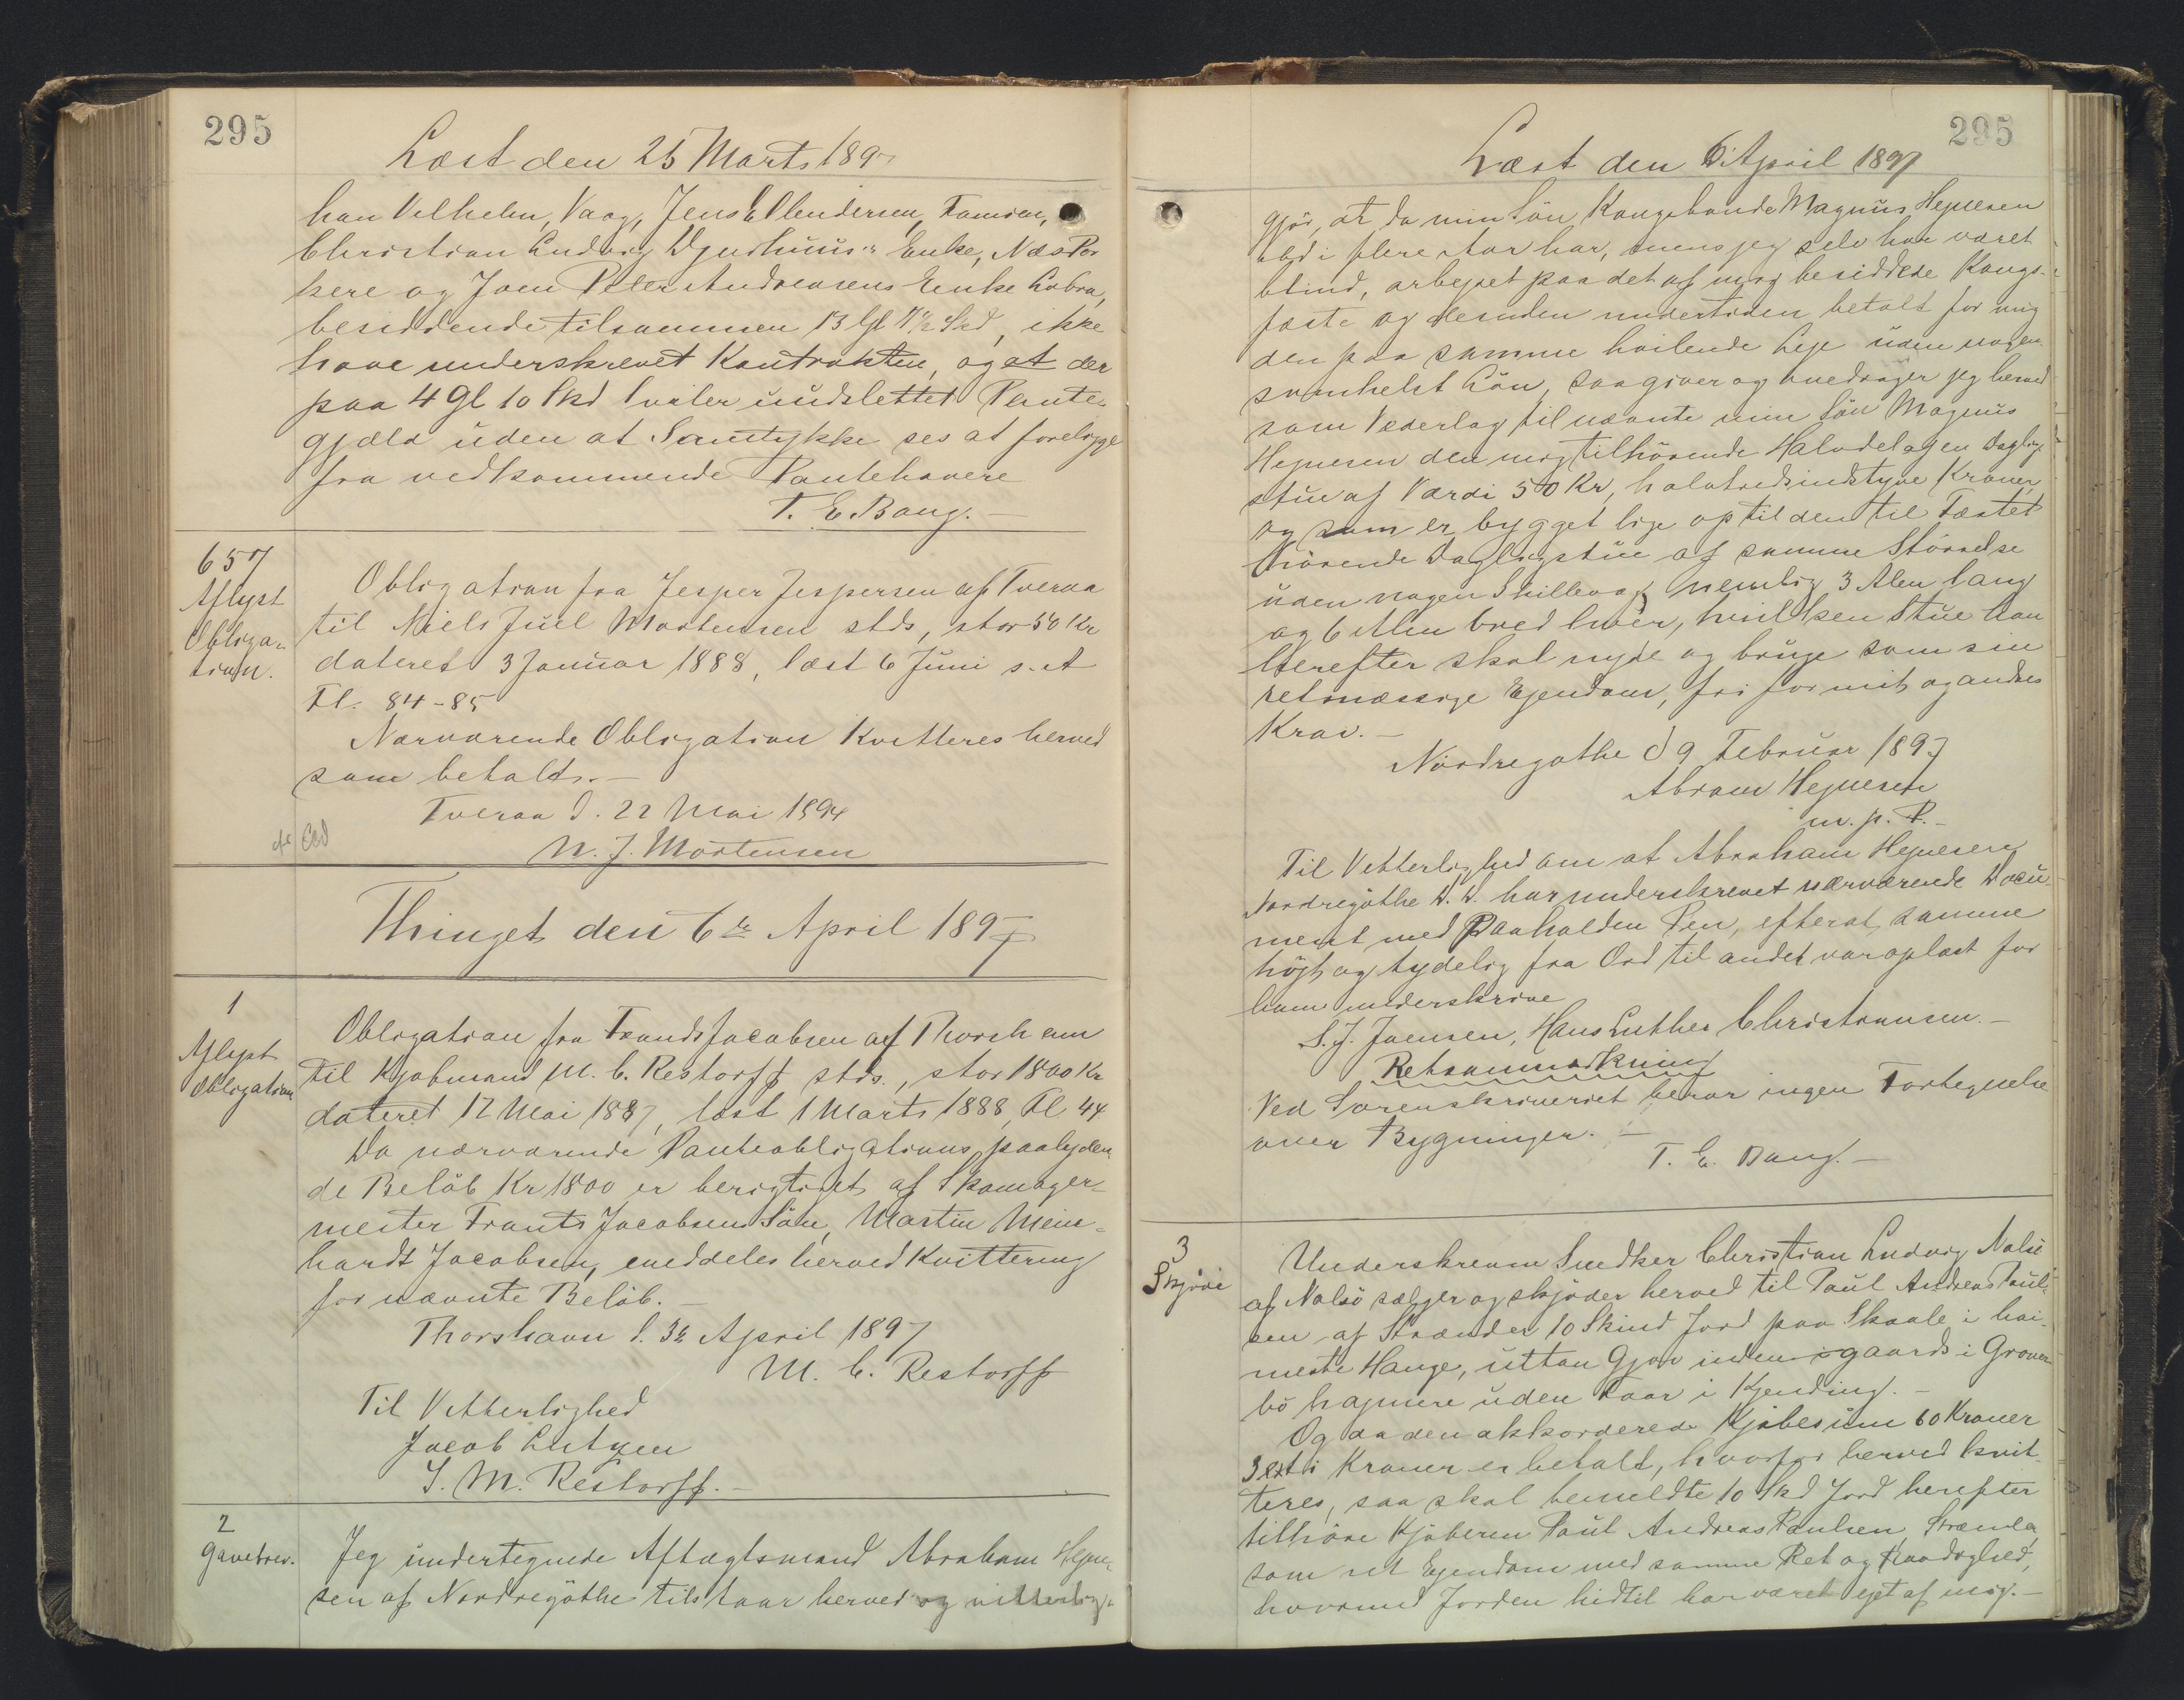 295
Læst den 25 Marts 1897
han Vilhelm, Vaag, Jens Ellendersen, Famien,
Christian Ludvig Djurhuus's Enke, Næs Por
kere og Joen Peter Andreasens Enke Lobra,
besiddende tilsammen 13 Gl 7½ Skd, ikke
have underskrevet Kontrakten, og at der
paa 4 Gl 10 Skd hviler uudslettet Pante-
gjæld uden at Samtykke ses at foreligge
fra vedkommende Pantehavere
T. E. Bang.—
657
Aflyst
Obliga-
tion.
Obligation fra Jesper Jespersen af Tveraa
til Niels Juel Mortensen stds, stor 50 Kr
dateret 3 Januar 1888, læst 6 Juni s. A
Fl. 84-85
Nærværende Obligation Kvitteres herved
som betalt.—
Tveraa d. 22 Mai 1894
N. J. Mortensen
Thinget den 6te April 1897
1
Aflyst
Obligation
Obligation fra Frands Jacobsen af Thorshavn
til Kjøbmand M. C. Restorff stds., stor 1800 Kr
dateret 12 Mai 1887, læst 1 Marts 1888, Fl. 44
Da nærværende Panteobligations paalyden-
de Beløb Kr 1800 er berigtiget af Skomager-
mester Frants Jacobsens Søn, Martin Mein-
hardt Jacobsen, meddeles herved Kvittering
for nævnte Beløb.—
Thorshavn d. 3die April 1897
M. C. Restorff
Til Vitterlighed
Jacob Lützen
S. M. Restorff.—
2
Gavebrev.
Jeg undertegnede Aftægtsmand Abraham Hejne-
sen af Nordregøthe tilstaar herved og vitterlig-
295
Læst den 6 April 1897
gjör, at da min Sön Kongsbonde Magnus Hejnesen
nu i flere Aar har, mens jeg selv har været
blind, arbejdet paa det af mig besiddede Kongs-
fæste og desuden undertiden betalt for mig
den paa samme hvilende Leje uden nogen-
somhelst Lön, saa giver og overdrager jeg herved
som Vederlag til nævnte min Sön Magnus
Hejnesen den mig tilhörende Halvdel af en Daglig-
stue af Værdi 50 Kr, halvtredsindstyve Kroner,
og som er bygget lige op til den til Fæstet
hörende Dagligstue af samme Störrelse
uden nogen Skillevæg, nemlig 3 Alen lang
og 6 Alen bred hver, hvilken Stue han
herefter skal nyde og bruge som sin
retmæssige Ejendom, fri for mit og andres
Krav.—
Nordregøthe d 9 Februar 1897
Abram Hejnesen
m. p. P.—
Til Vitterlighed om at Abraham Hejnesen
Nordregøthe D. D. har underskrevet nærværende Docu-
ment med Paaholden Pen, efterat samme
højt og tydelig fra Ord til andet var oplæst for
ham underskrive
S. J. Joensen, Hans Luther Christiansen.—
Retsanmærkning
Ved Sorenskriveriet beror ingen Fortegnelse
over Bygninger.—
T. E. Bang.—
3
Skjøde
Underskrevne Snedker Christian Ludvig Nolsö
af Nolsö sælger og skjøder herved til Poul Andreas Poul-
sen af Strænder 10 Skind Jord paa Skaale i hei-
meste Hauge, uttan Gjov inden gaards i Grover
bö hajmere uden Faar i Kjending.—
Og da den akkorderede Kjøbesum 60 Kroner
Sexti Kroner er betalt, hvorfor herved kvit-
teres, saa skal bemeldte 10 Skd Jord herefter
tilhöre Kjøberen Poul Andreas Poulsen, Strænder,
som ret Ejendom med samme Ret og Herlighed,
hvormed Jorden hidtil har været ejet af mig.—